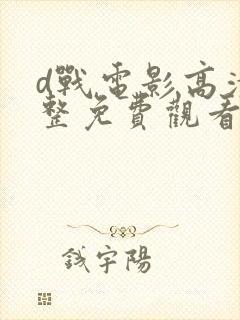 d戰電影高清
整免費觀看
錢宇陽